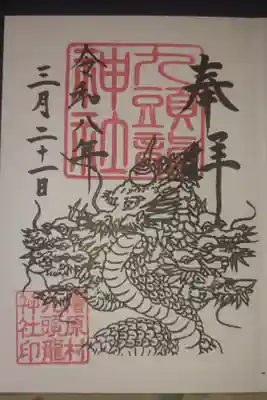 奉拝
九頭龍
神社
令和八年
三月二十一日
檜原村
九頭龍
神社印